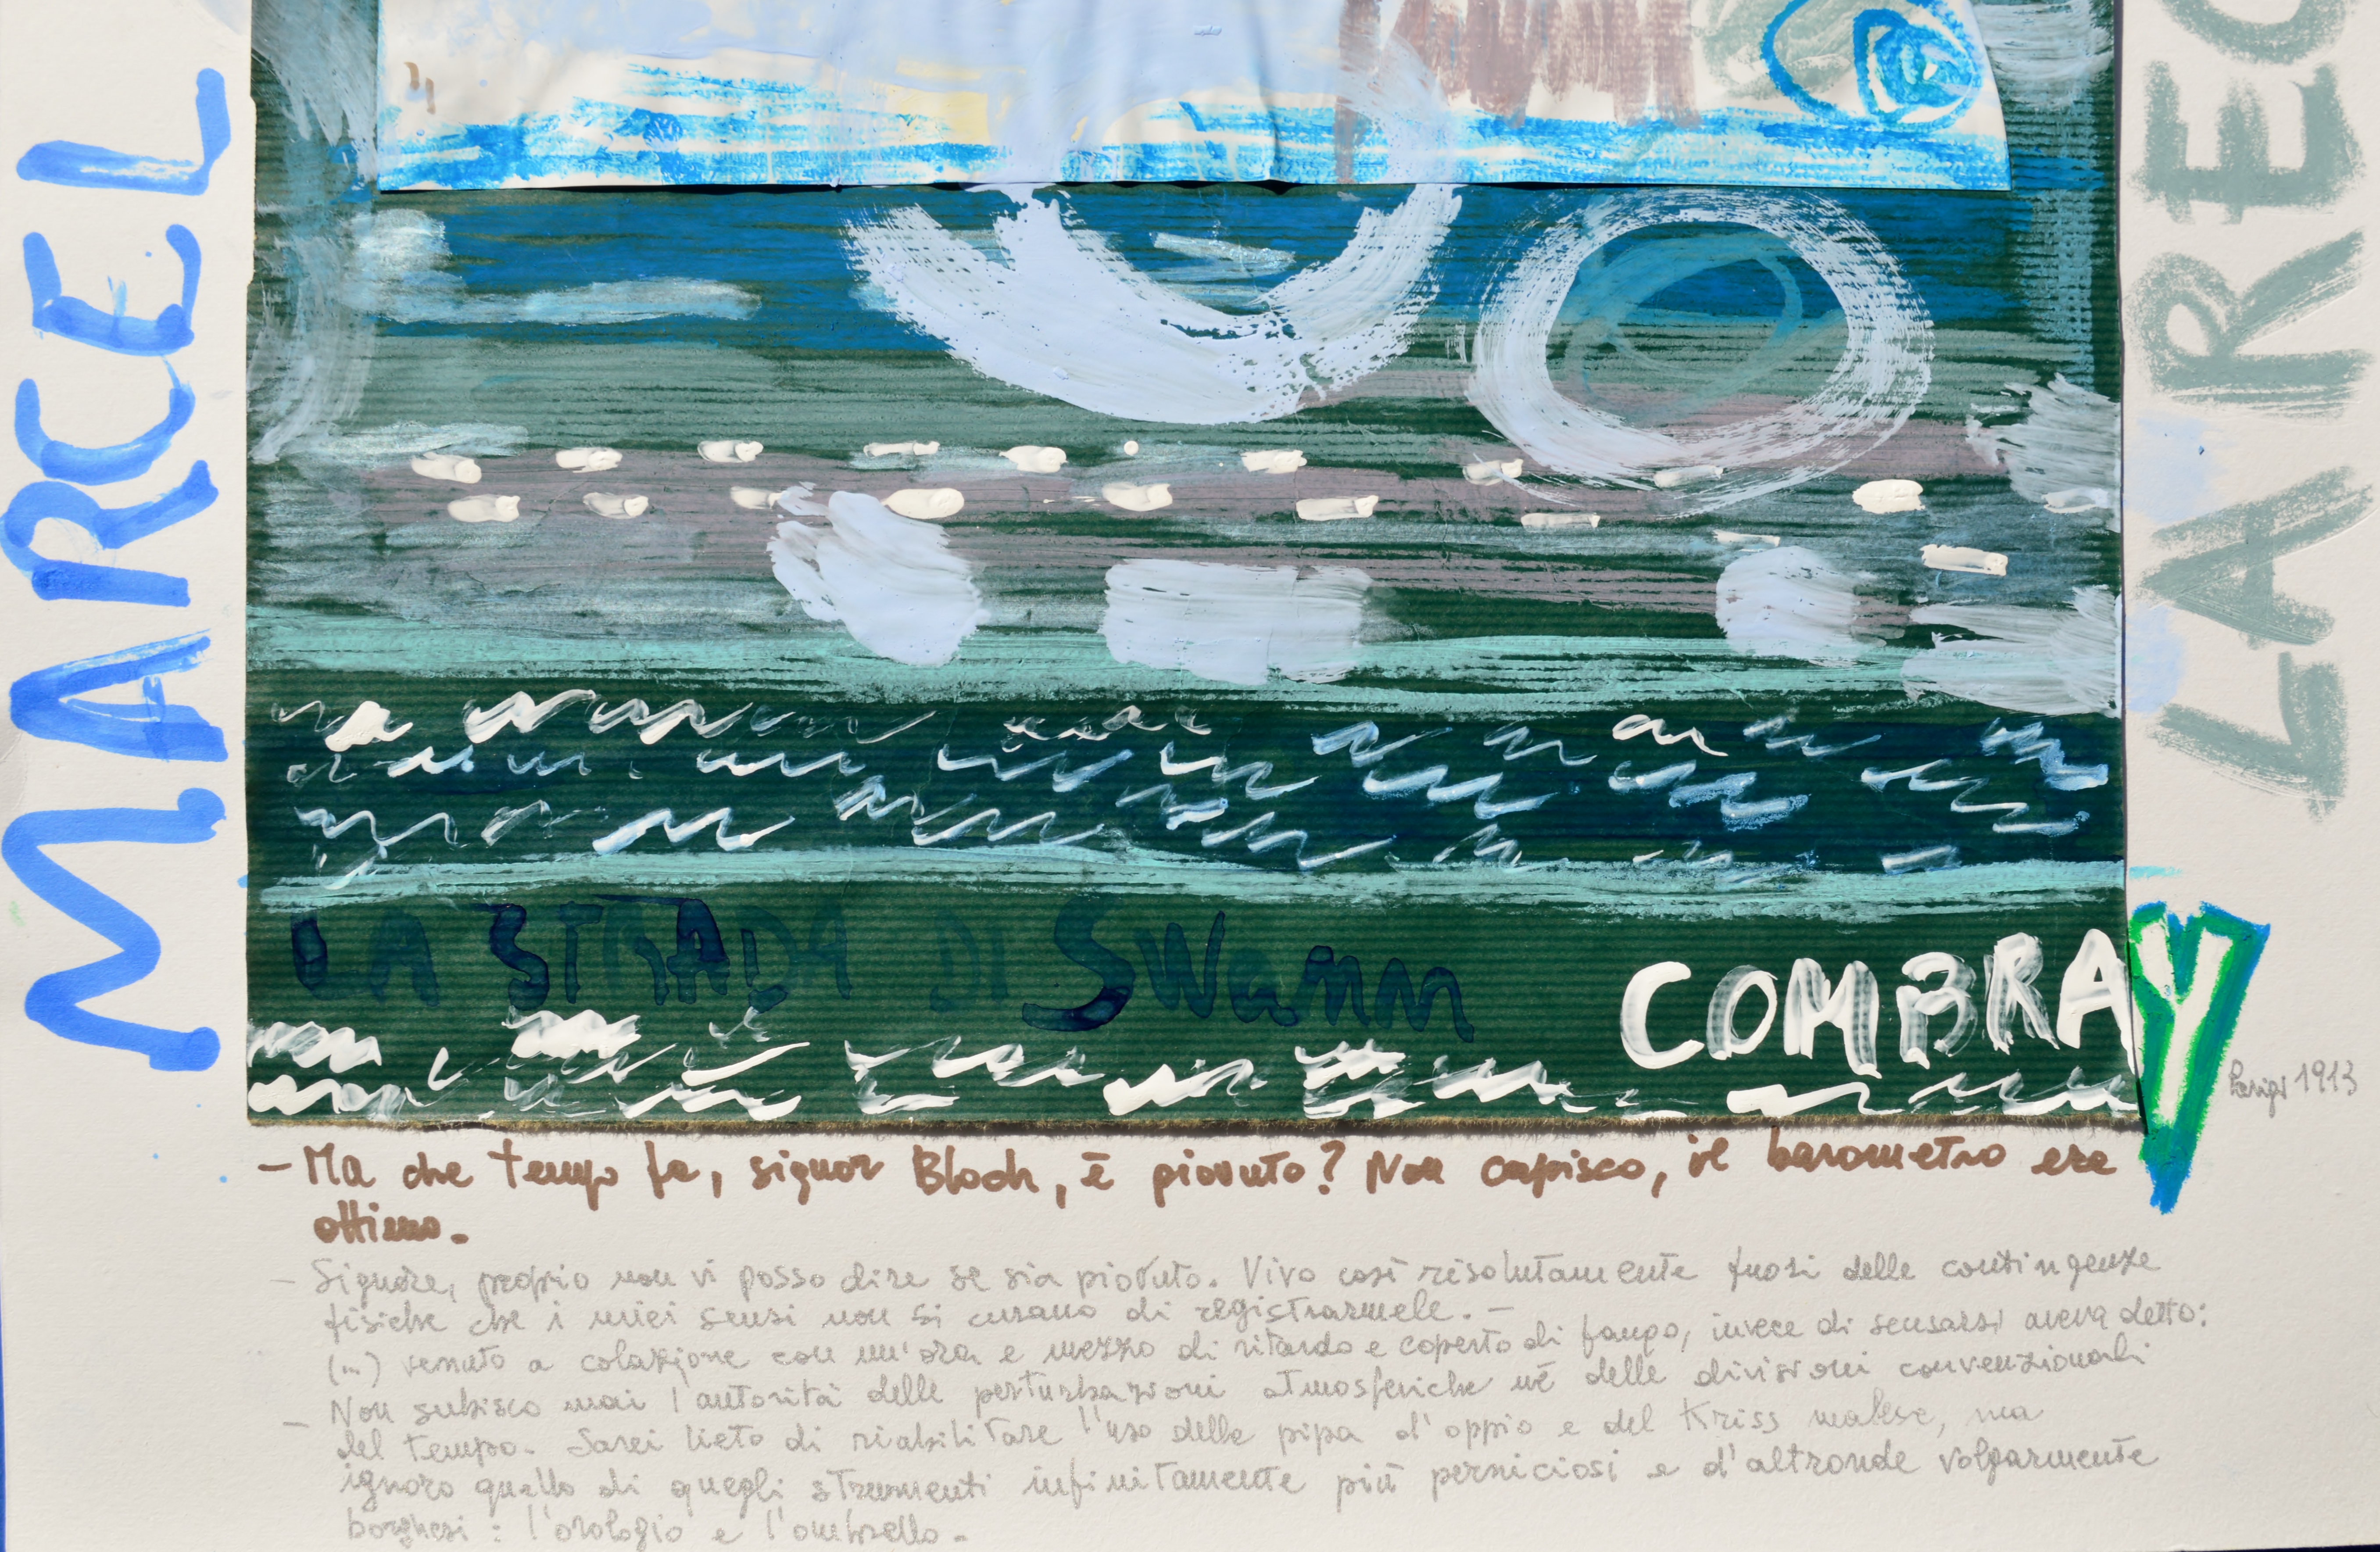 MARCEL
LA REC
LA STRADA DI Swann
COMBRAY
Parigi 1913
- Ma che tempo fa, signor Bloch, è piovuto? Non capisco, il barometro era
ottimo.
- Signore, proprio non vi posso dire se sia piovuto. Vivo così risolutamente fuori delle contingenze
fisiche che i miei sensi non si curano di registrarmele. -
(...) venuto a colazione con un'ora e mezzo di ritardo e coperto di fango, invece di scusarsi aveva detto:
- Non subisco mai l'autorità delle perturbazioni atmosferiche né delle divisioni convenzionali
del tempo. Sarei lieto di riabilitare l'uso della pipa d'oppio e del Kriss malese, ma
ignoro quello di quegli strumenti infinitamente più perniciosi e d'altronde volgarmente
borghesi: l'orologio e l'ombrello.